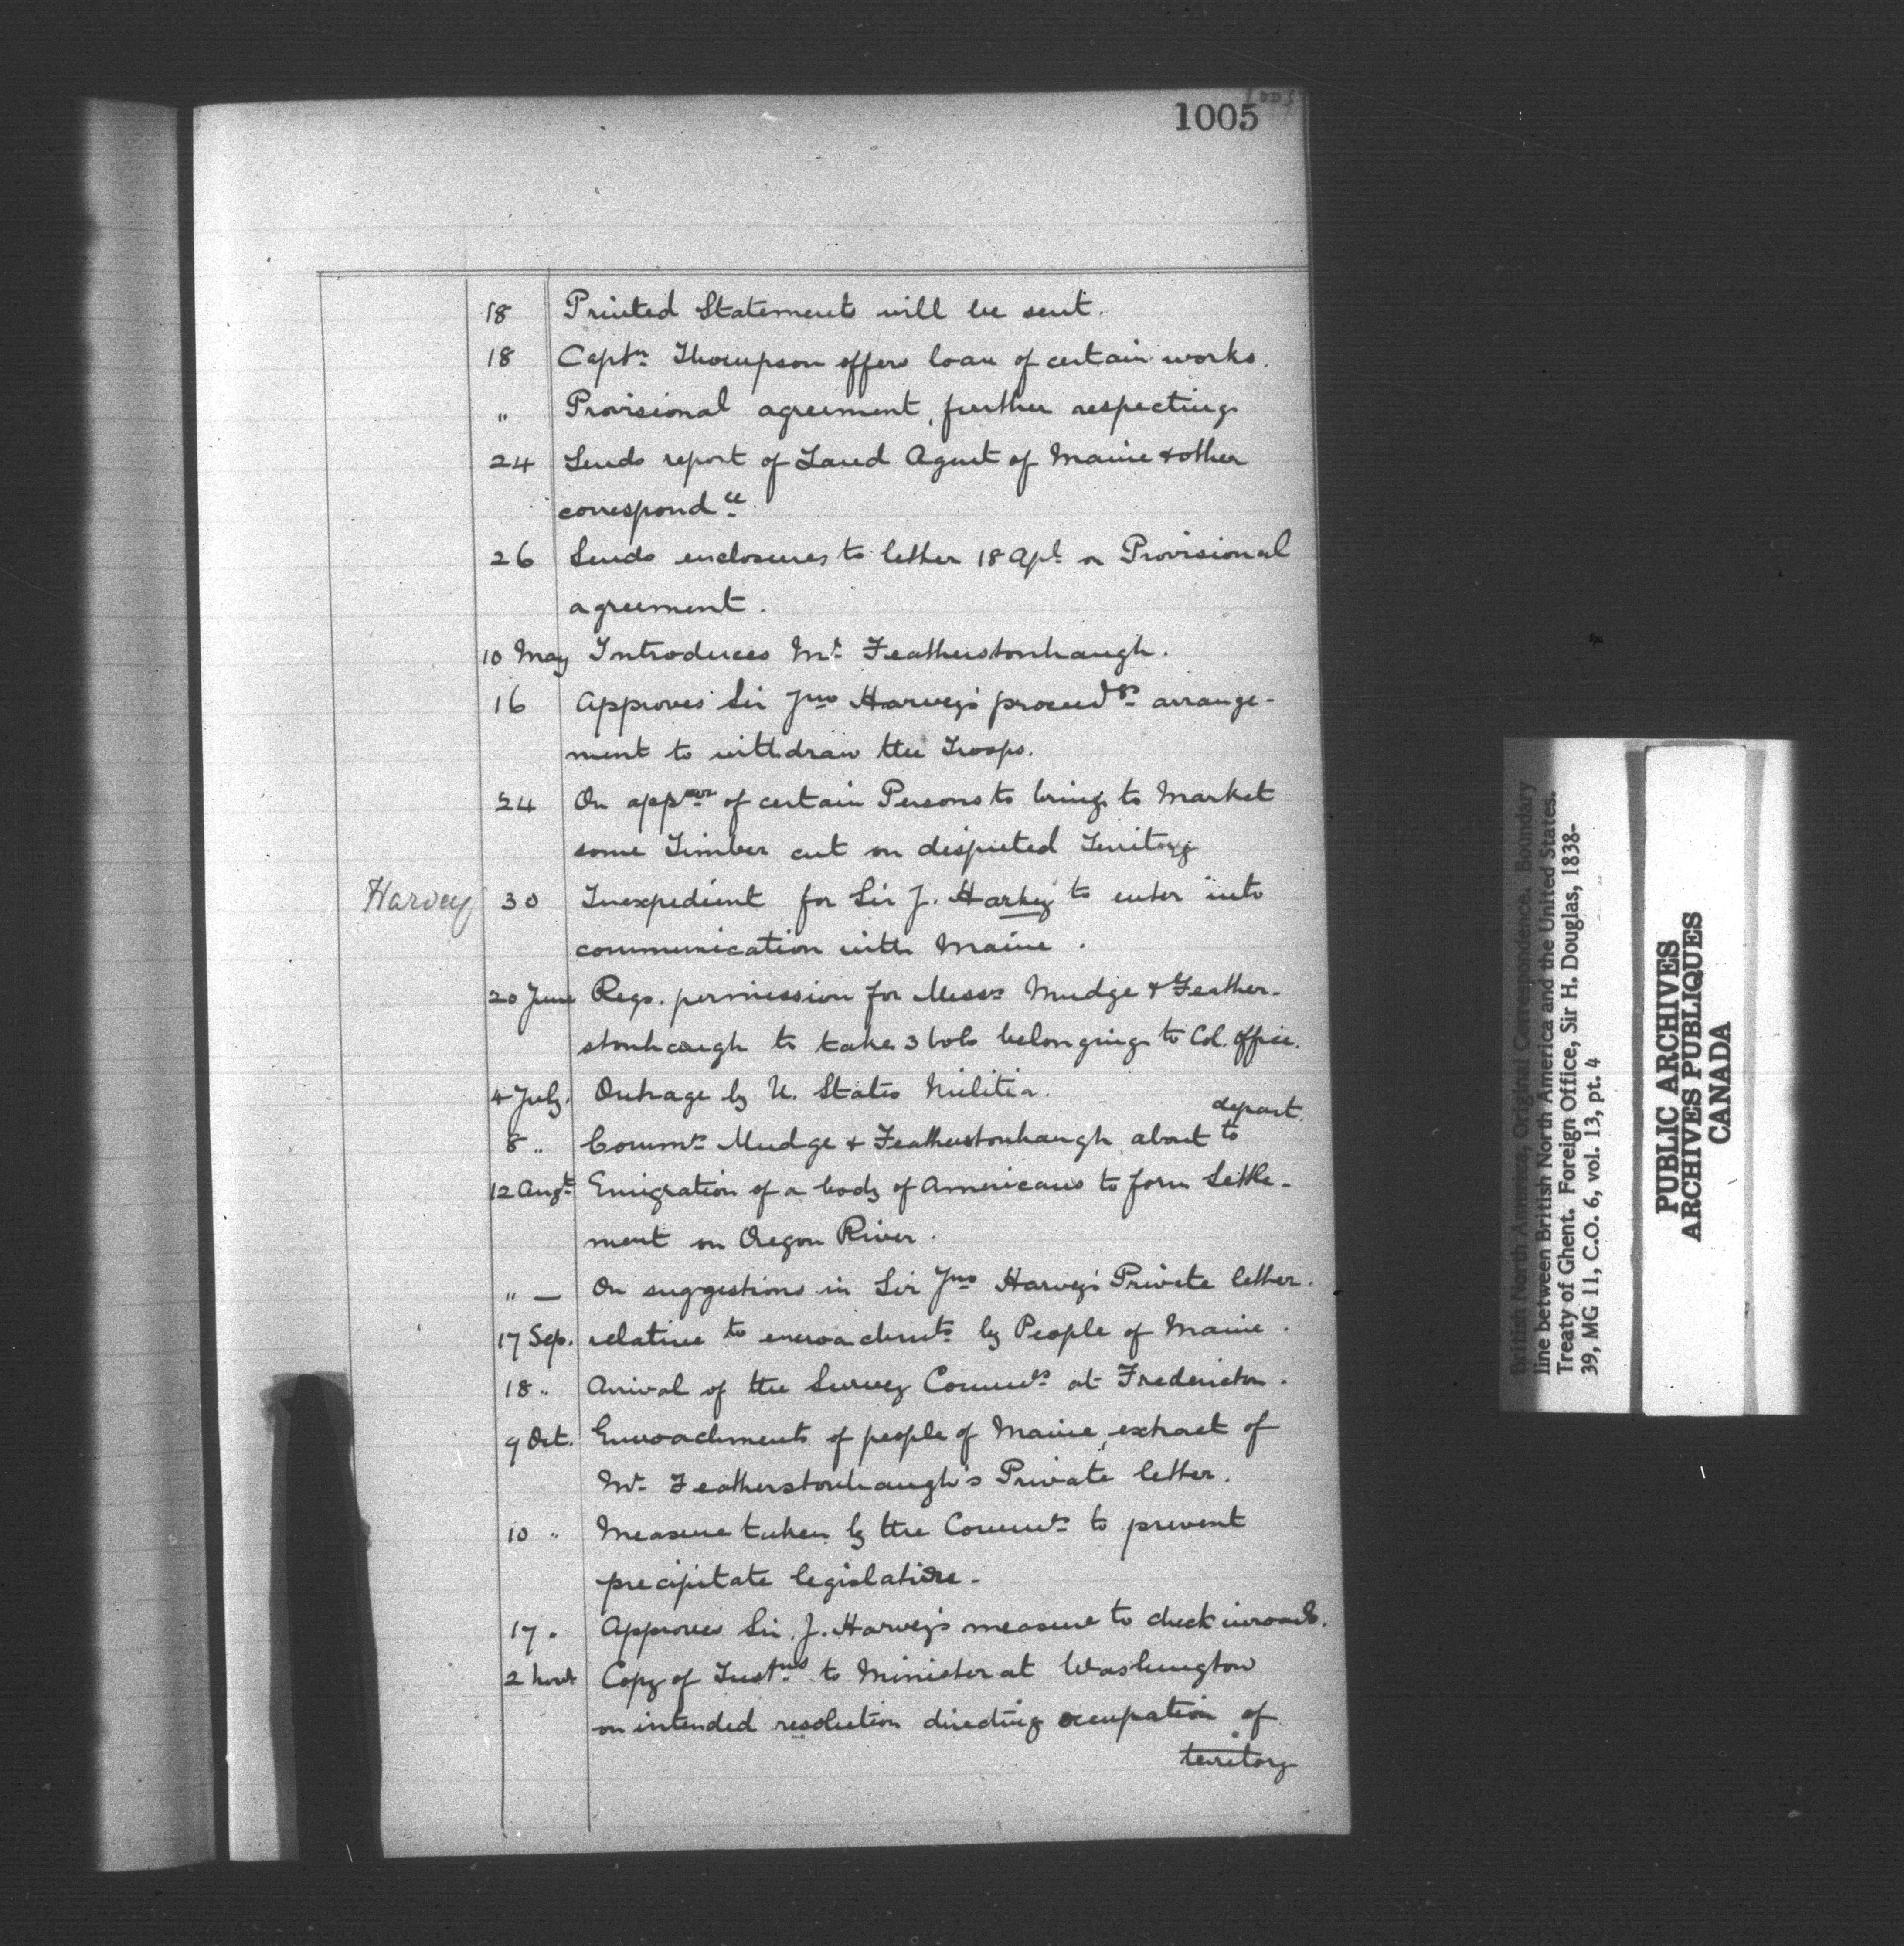 1005
18 Printed Statements will be sent.
18 Captn Thompson offers loan of certain works.
" Provisional agreement, further respecting
24 Sends report of Land Agent of Maine & other
correspondce
26 Sends enclosures to letter 18 Apl on Provisional
agreement.
10 May Introduces Mr Featherstonhaugh.
16 Approves Sir Jno Harvey's proceedgs arrange-
ment to withdraw the Troops.
24 On of certain Persons to bring to Market
some Timber cut on disputed Territory
Harvey 30 Inexpedient for Sir J. Harvey to enter into
communication with Maine.
20 June Reqs. permission for Messrs Mudge & Feather-
stonhaugh to take 3 vols belonging to Col. Office.
4 July. Outrage by U. States Militia.
depart.
8 " Commrs Mudge & Featherstonhaugh about to
12 Augt Emigration of a body of Americans to form Settle-
ment on Oregon River.
" — On suggestions in Sir Jno Harvey's Private letter.
17 Sep. relative to encroachmts by People of Maine.
18 " Arrival of the Survey Commrs at Fredericton.
9 Oct. Encroachments of people of Maine, extract of
Mr Featherstonhaugh's Private letter.
10 " Measure taken by the Commrs to prevent
precipitate legislature.
17 " Approves Sir J. Harvey's measure to check inroads.
2 Novr Copy of Instns to Minister at Washington
on intended resolution directing occupation of
territory
British North America, Original Correspondence. Boundary
line between British North America and the United States.
Treaty of Ghent. Foreign Office, Sir H. Douglas, 1838-
39, MG 11, C.O. 6, vol. 13, pt. 4
PUBLIC ARCHIVES
ARCHIVES PUBLIQUES
CANADA